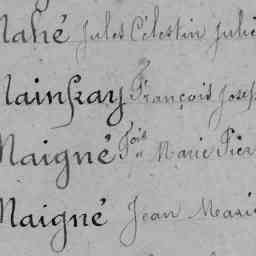 Mahé Jules Célestin Julie
Mainfray François Josep
Maigné Fois Marie Pier
Maigné Jean Marie